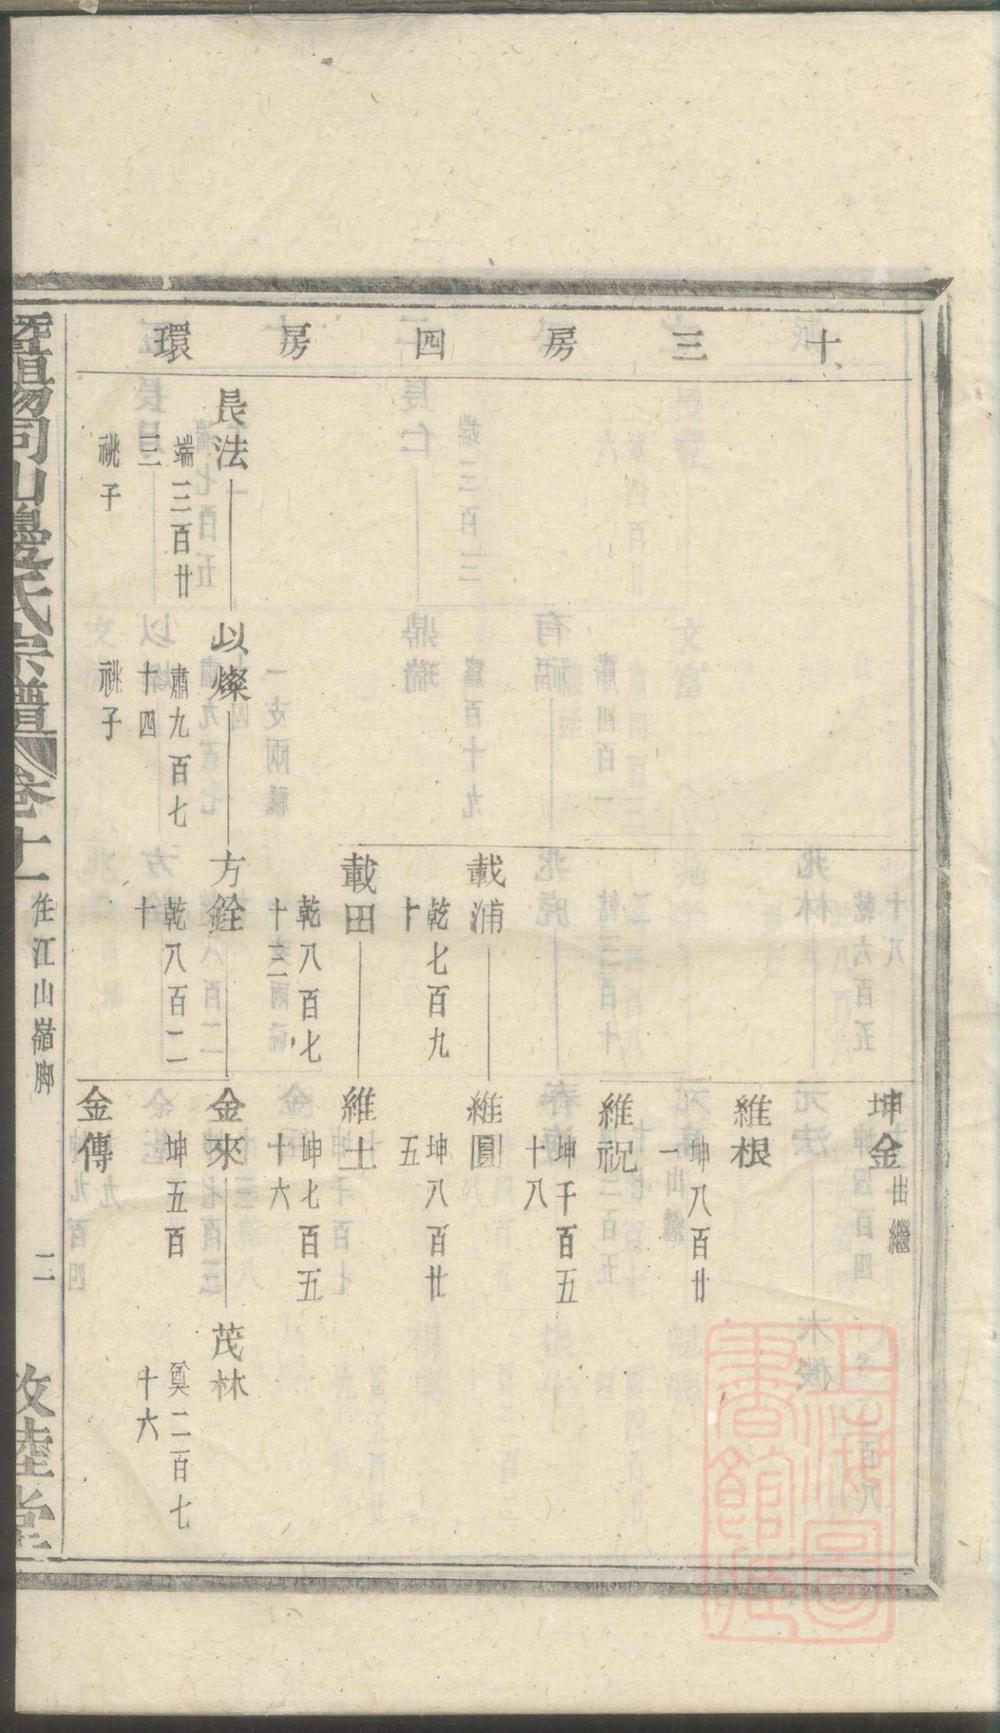 十三房四房環
坤金
出繼
維根
坤八百廿
一
維祝
坤千百五
十八
載浦
乾七百九
十
維圓
坤八百廿
五
載田
乾八百七
十三
維土
坤七百五
十六
長法
端三百廿
三
祧子
以燦
肅九百七
十四
祧子
方銓
乾八百二
十
金來
坤五百
茂林
奠二百七
十六
金傳
暨陽同山邊氏宗譜
卷十一
住江山嶺脚
二
敦睦堂
上海圖
書館藏